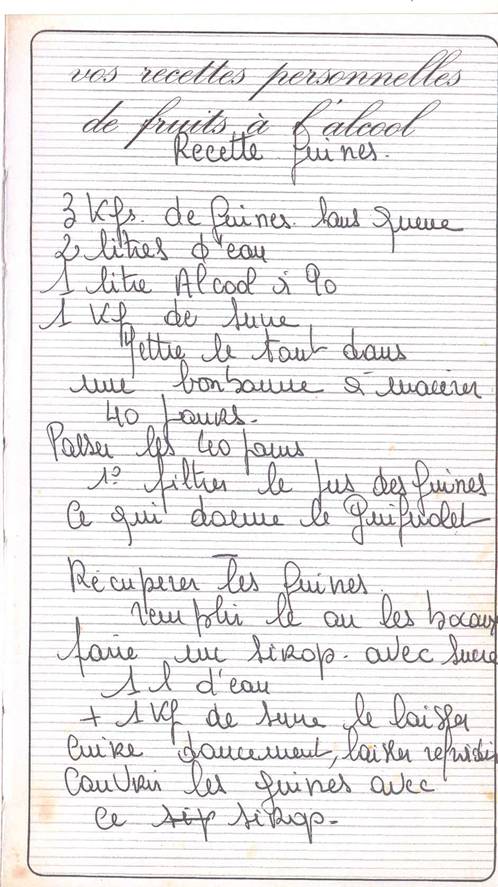 vos recettes personnelles
de fruits à l'alcool
Recette guines.
3 Kgs. de guines sans queue
2 litres d'eau
1 litre Alcool à 90
1 Kg de sucre
Mettre le tout dans
une bonbonne à macérer
40 jours.
Passer les 40 jours
1º filtrer le jus des guines
Ce qui donne le Guignolet
Récuperer les guines.
remplir le ou les bocaux
faire un sirop. avec sucre
1 l d'eau
+ 1 Kg de sucre le laisser
Cuire doucement, laisser refroidir
Couvrir les guines avec
ce sip sirop.